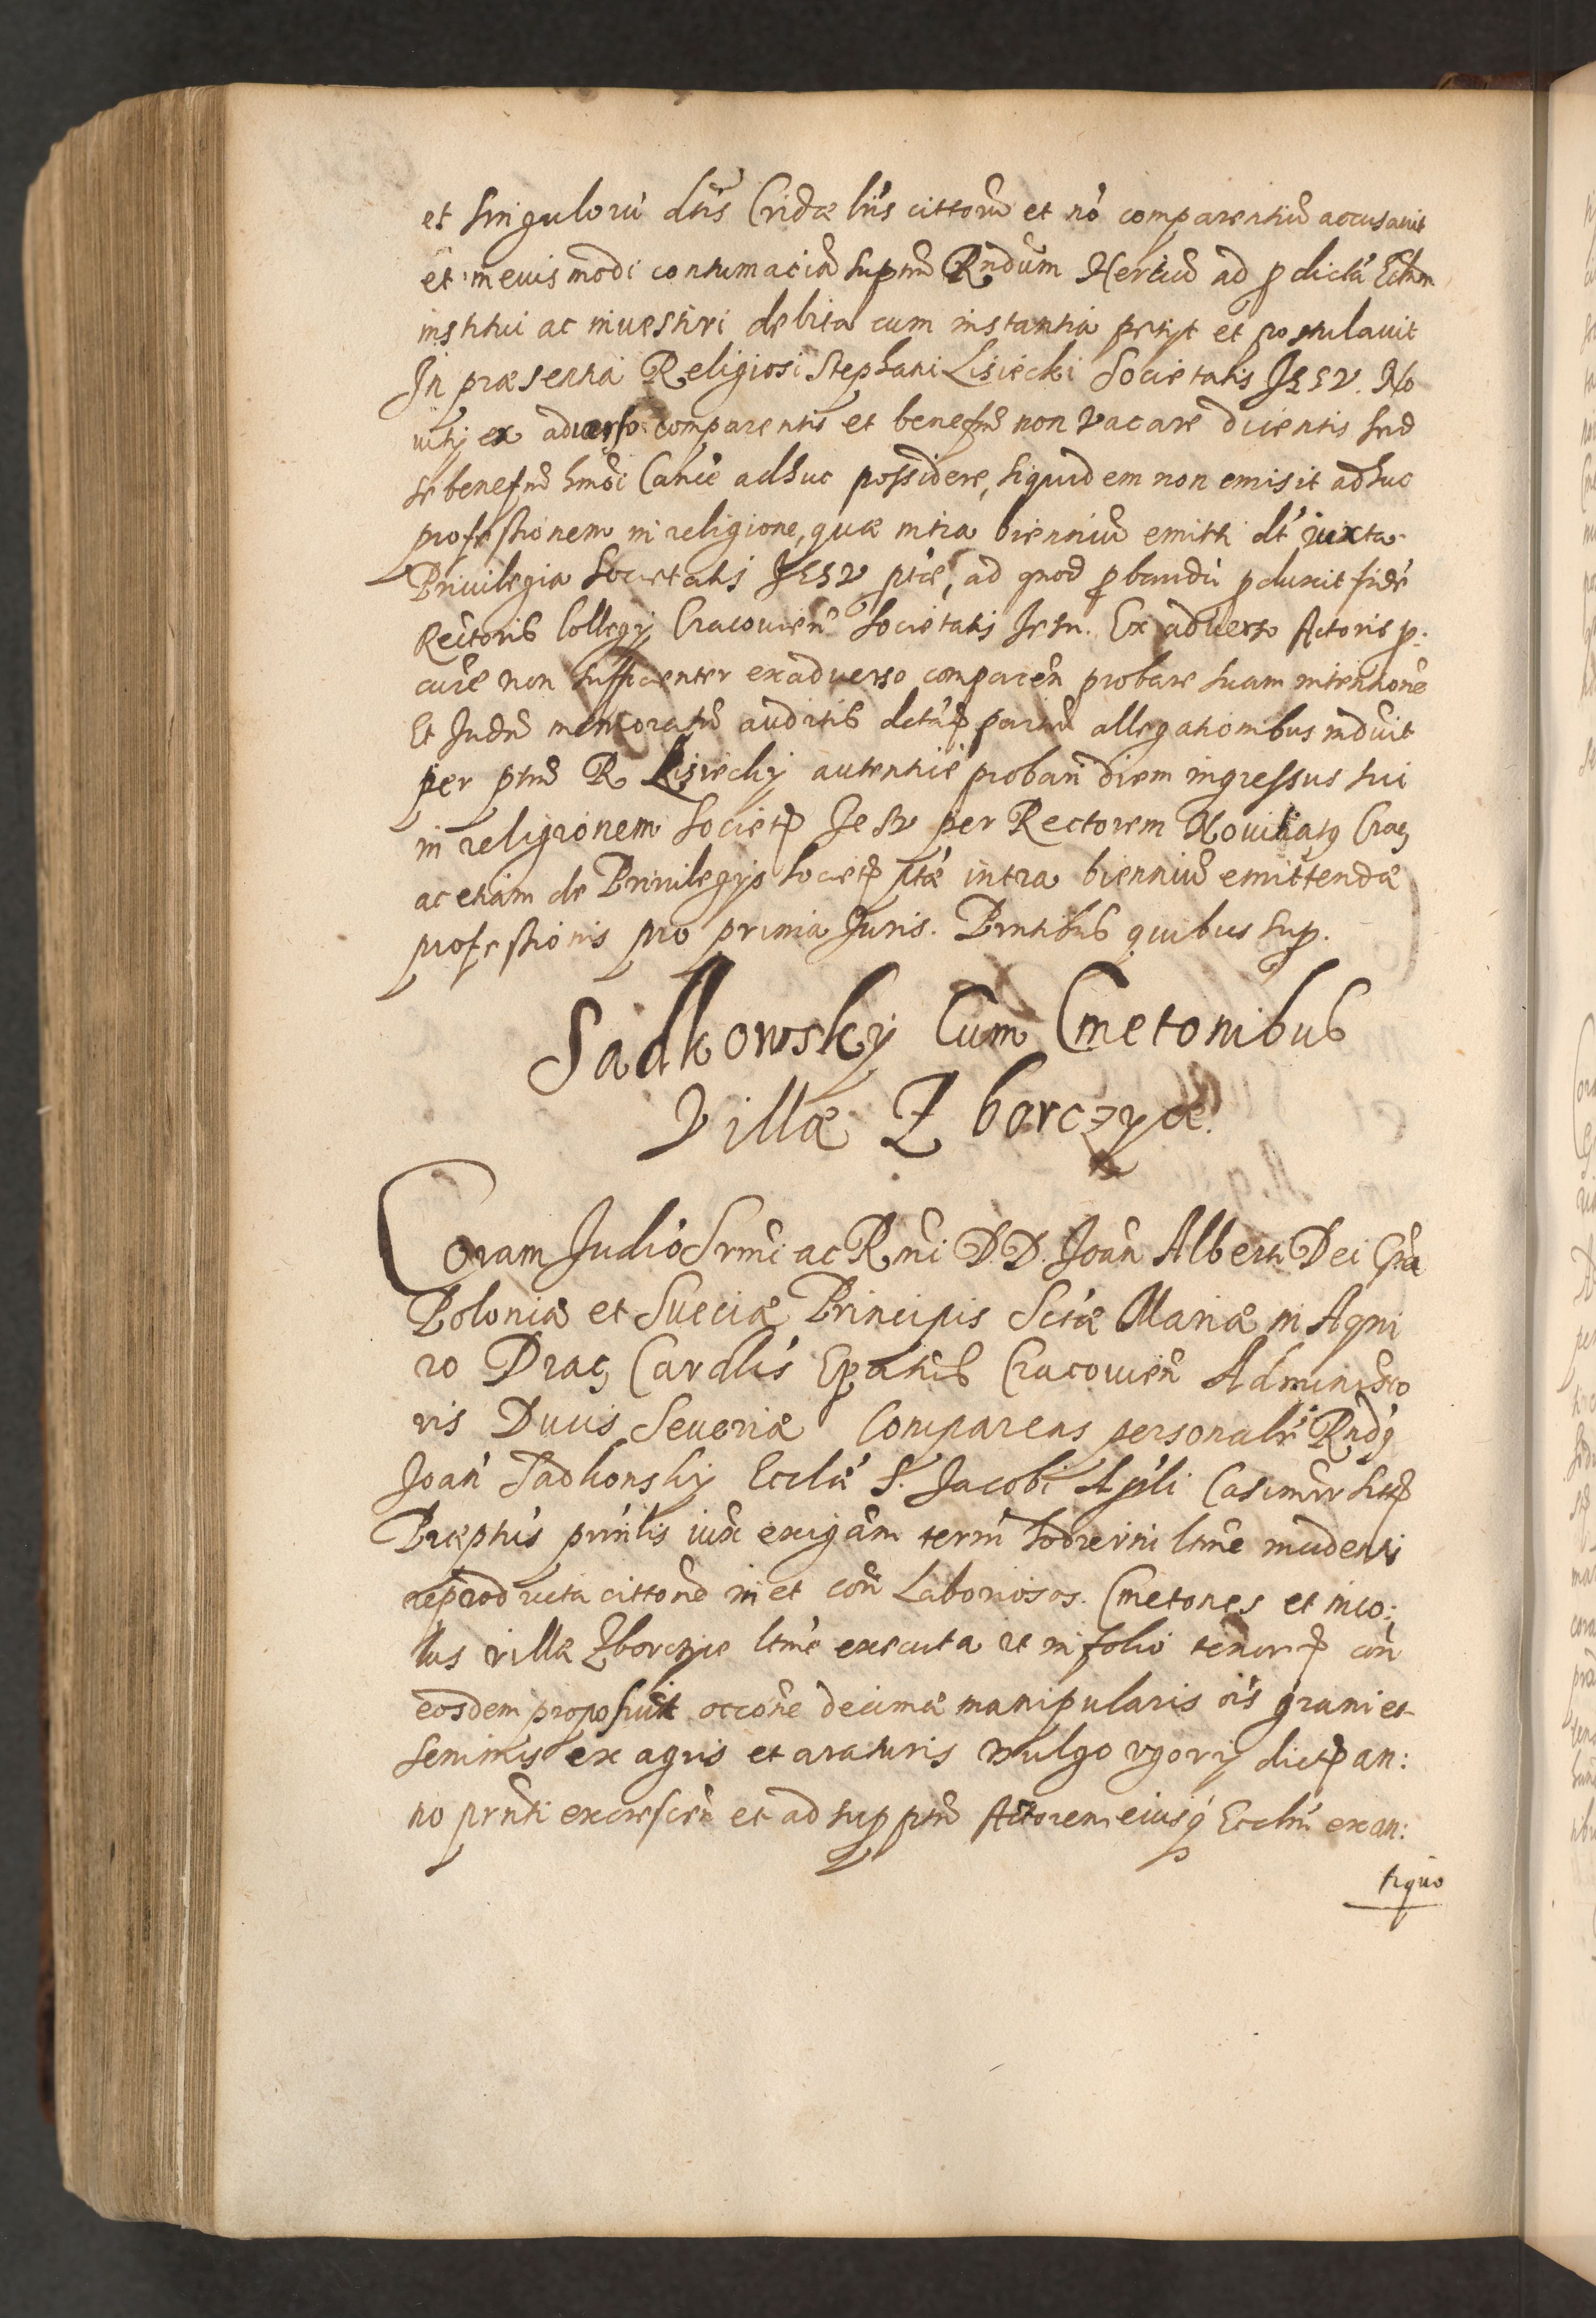 et singulorũ dtis Cridæ lriis cittorũ et nõ comparentiũ accusavit
et in eius modi contumaciã suptũ Rndum Herciũ ad pdictã Ecclam
institui ac investiri debita cum instantia petijt et postulavit
In præsentia Religiosi Stephani Lisiecki Societatis JESV. No
vitij ex adverso comparentis et benefm̃ non vacare dicentis sed
se benefm̃ hmõi Canc̃e adhuc possidere, siquidem non emisit adhuc
professionem in religione, quæ intra bienniũ emitti dt̃ iuxta
Privilegia Societatis JESV ptæ, ad quod pbandũ pduxit fidẽ
Rectoris Collegij Cracovieñ Societatis Jesu. Ex adverso Actoris p.
curẽ non sufficienter ex adverso compareñ probare suam intentionẽ
Et Judm̃ memoratũ auditis dctarp̃ partiũ allegationibus induxit
per ptm̃ R. Lisiecky autenticẽ probari diem ingressus sui
in religionem Societp̃ Jesv per Rectorem Novitiatq Crac,
ac etiam de Privilegijs Societp̃ ptæ intra bienniũ emittendæ
professionis pro primia Juris. Pntibus quibus sup.
Sadkowsky Cum Cmetonibus
Villæ Zborczyce.
Coram Judio Srmi ac Rmi D.D. Joañ Alberti Dei Gra
Poloniæ et Sueciæ Principis Sctæ Mariæ in Aqui
ro Diac, Cardlis Epatus Cracovieñ Administo
ris Ducis Severiæ Comparens personalr Rndq
Joañ Sadkowsky Ecclæ S. Jacobi Apli Casimirr
Præptus primtis iux exigam termi hodierni ltme incidentis
reproducta cittone in et coñ Laboriosos. Cmetones et inco:
las villæ Zborczyce ltme executa et in folio tenorp̃ coñ
eosdem proposuit occone decimæ manipularis ois grani et
seminis ex agris et araturis vulgo vgory dictp̃ an:
no prnti excrescen et ad supptũ Actorem eiusq Ecclm ex an:
tiquo